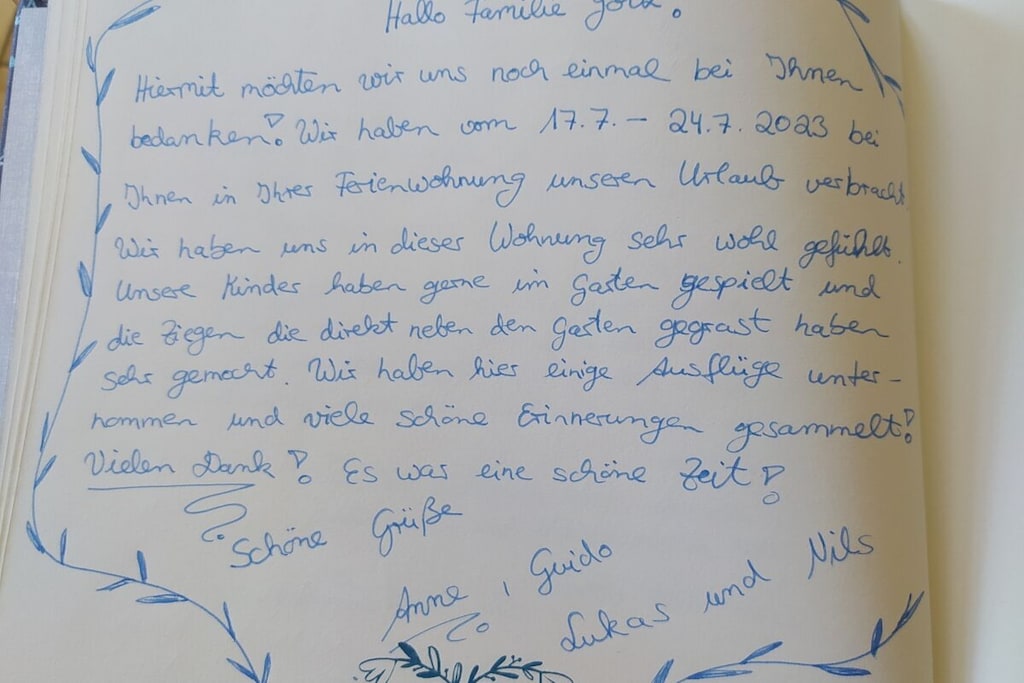 Hallo Familie
Hiermit möchten wir uns noch einmal bei Ihnen
bedanken! Wir haben vom 17.7. - 24.7. 2023 bei
Ihnen in Ihrer Ferienwohnung unseren Urlaub verbracht.
Wir haben uns in dieser Wohnung sehr wohl gefühlt.
Unsere Kinder haben gerne im Garten gespielt und
die Ziegen die direkt neben den Garten gegrast haben
sehr gemocht. Wir haben hier einige Ausflüge unter-
nommen und viele schöne Erinnerungen gesammelt!
Vielen Dank! Es war eine schöne Zeit!
Schöne Grüße
Anne, Guido
Lukas und Nils